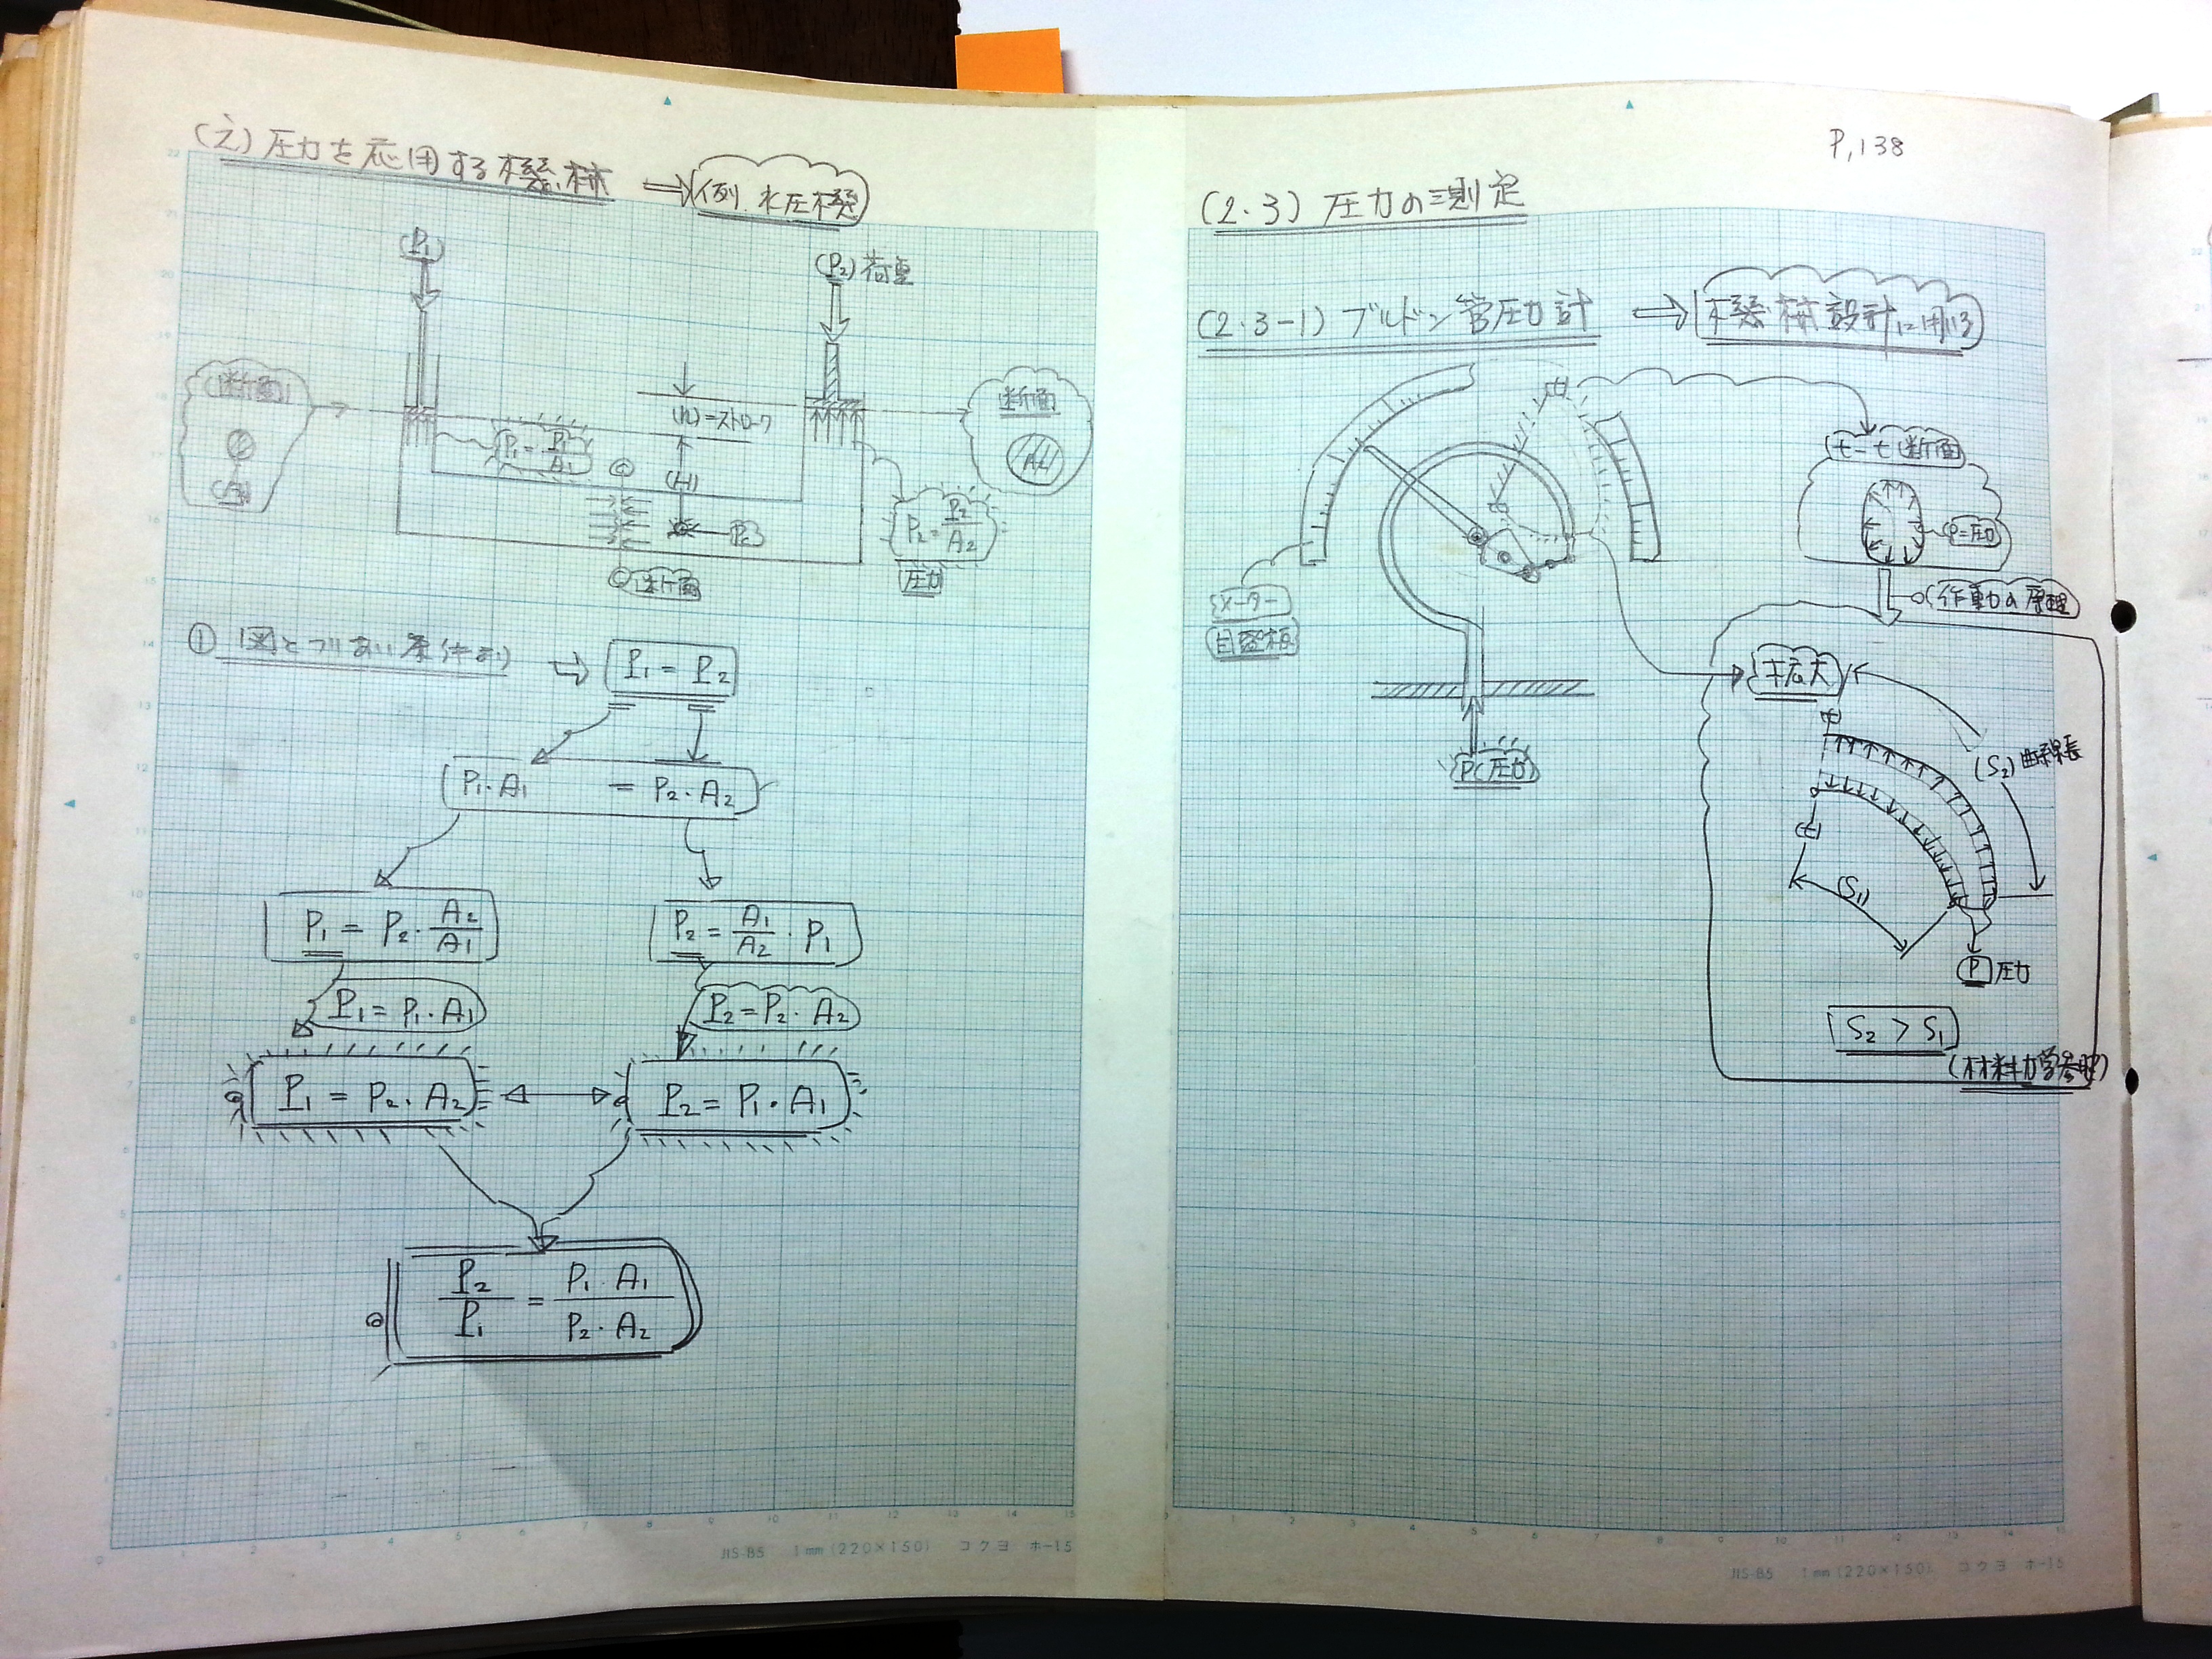 (2) 圧力を応用する機械 ⇒ 例. 水圧機
(P₁)
(P₂) 荷重
(断面)
(A₁)
p₁ = P₁/A₁
(h) = ストローク
(H)
Ⓒ
Ⓒ断面
断面
A₂
P₂ = P₂/A₂
圧力
① 図とつりあい条件より ⇒ P₁ = P₂
P₁・A₁ = P₂・A₂
P₁ = P₂・A₂/A₁
P₂ = A₁/A₂・P₁
P₁ = P₁・A₁
P₂ = P₂・A₂
P₁ = P₂・A₂
P₂ = P₁・A₁
P₂/P₁ = P₁・A₁/P₂・A₂
JIS-B5 1mm (220×150) コクヨ ホ-15
P,138
(2・3) 圧力の測定
(2・3-1) ブルドン管圧力計 ⇒ 機械設計に用いる
t-t断面
P=圧力
作動の原理
メーター
目盛板
P(圧力)
拡大
(S₂) 曲線長
(t)
(S₁)
P 圧力
S₂ > S₁
(材料力学参照)
JIS-B5 1mm (220×150) コクヨ ホ-15